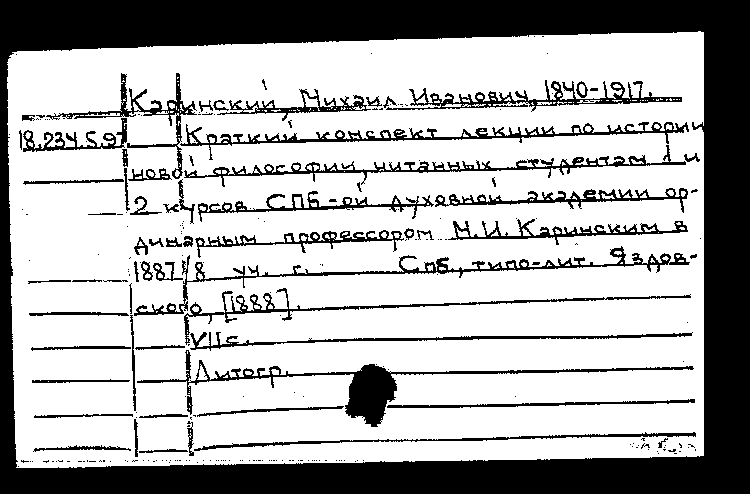 Каринский, Михаил Иванович, 1840-1917.
18.234.5.97 Краткий конспект лекции по истории
новой философии, читанных студентам 1 и
2 курсов СПБ-ой духовной академии ор-
динарным профессором М.И. Каринским в
1887/8 уч. г. Спб., типо-лит. Яздов-
ского, [1888].
VIIс.
Литогр.